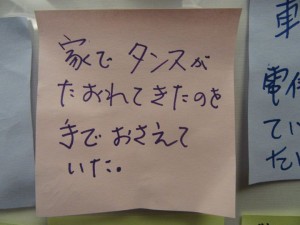 家でタンスが
たおれてきたのを
手でおさえて
いた。
車
電信
てい
たい